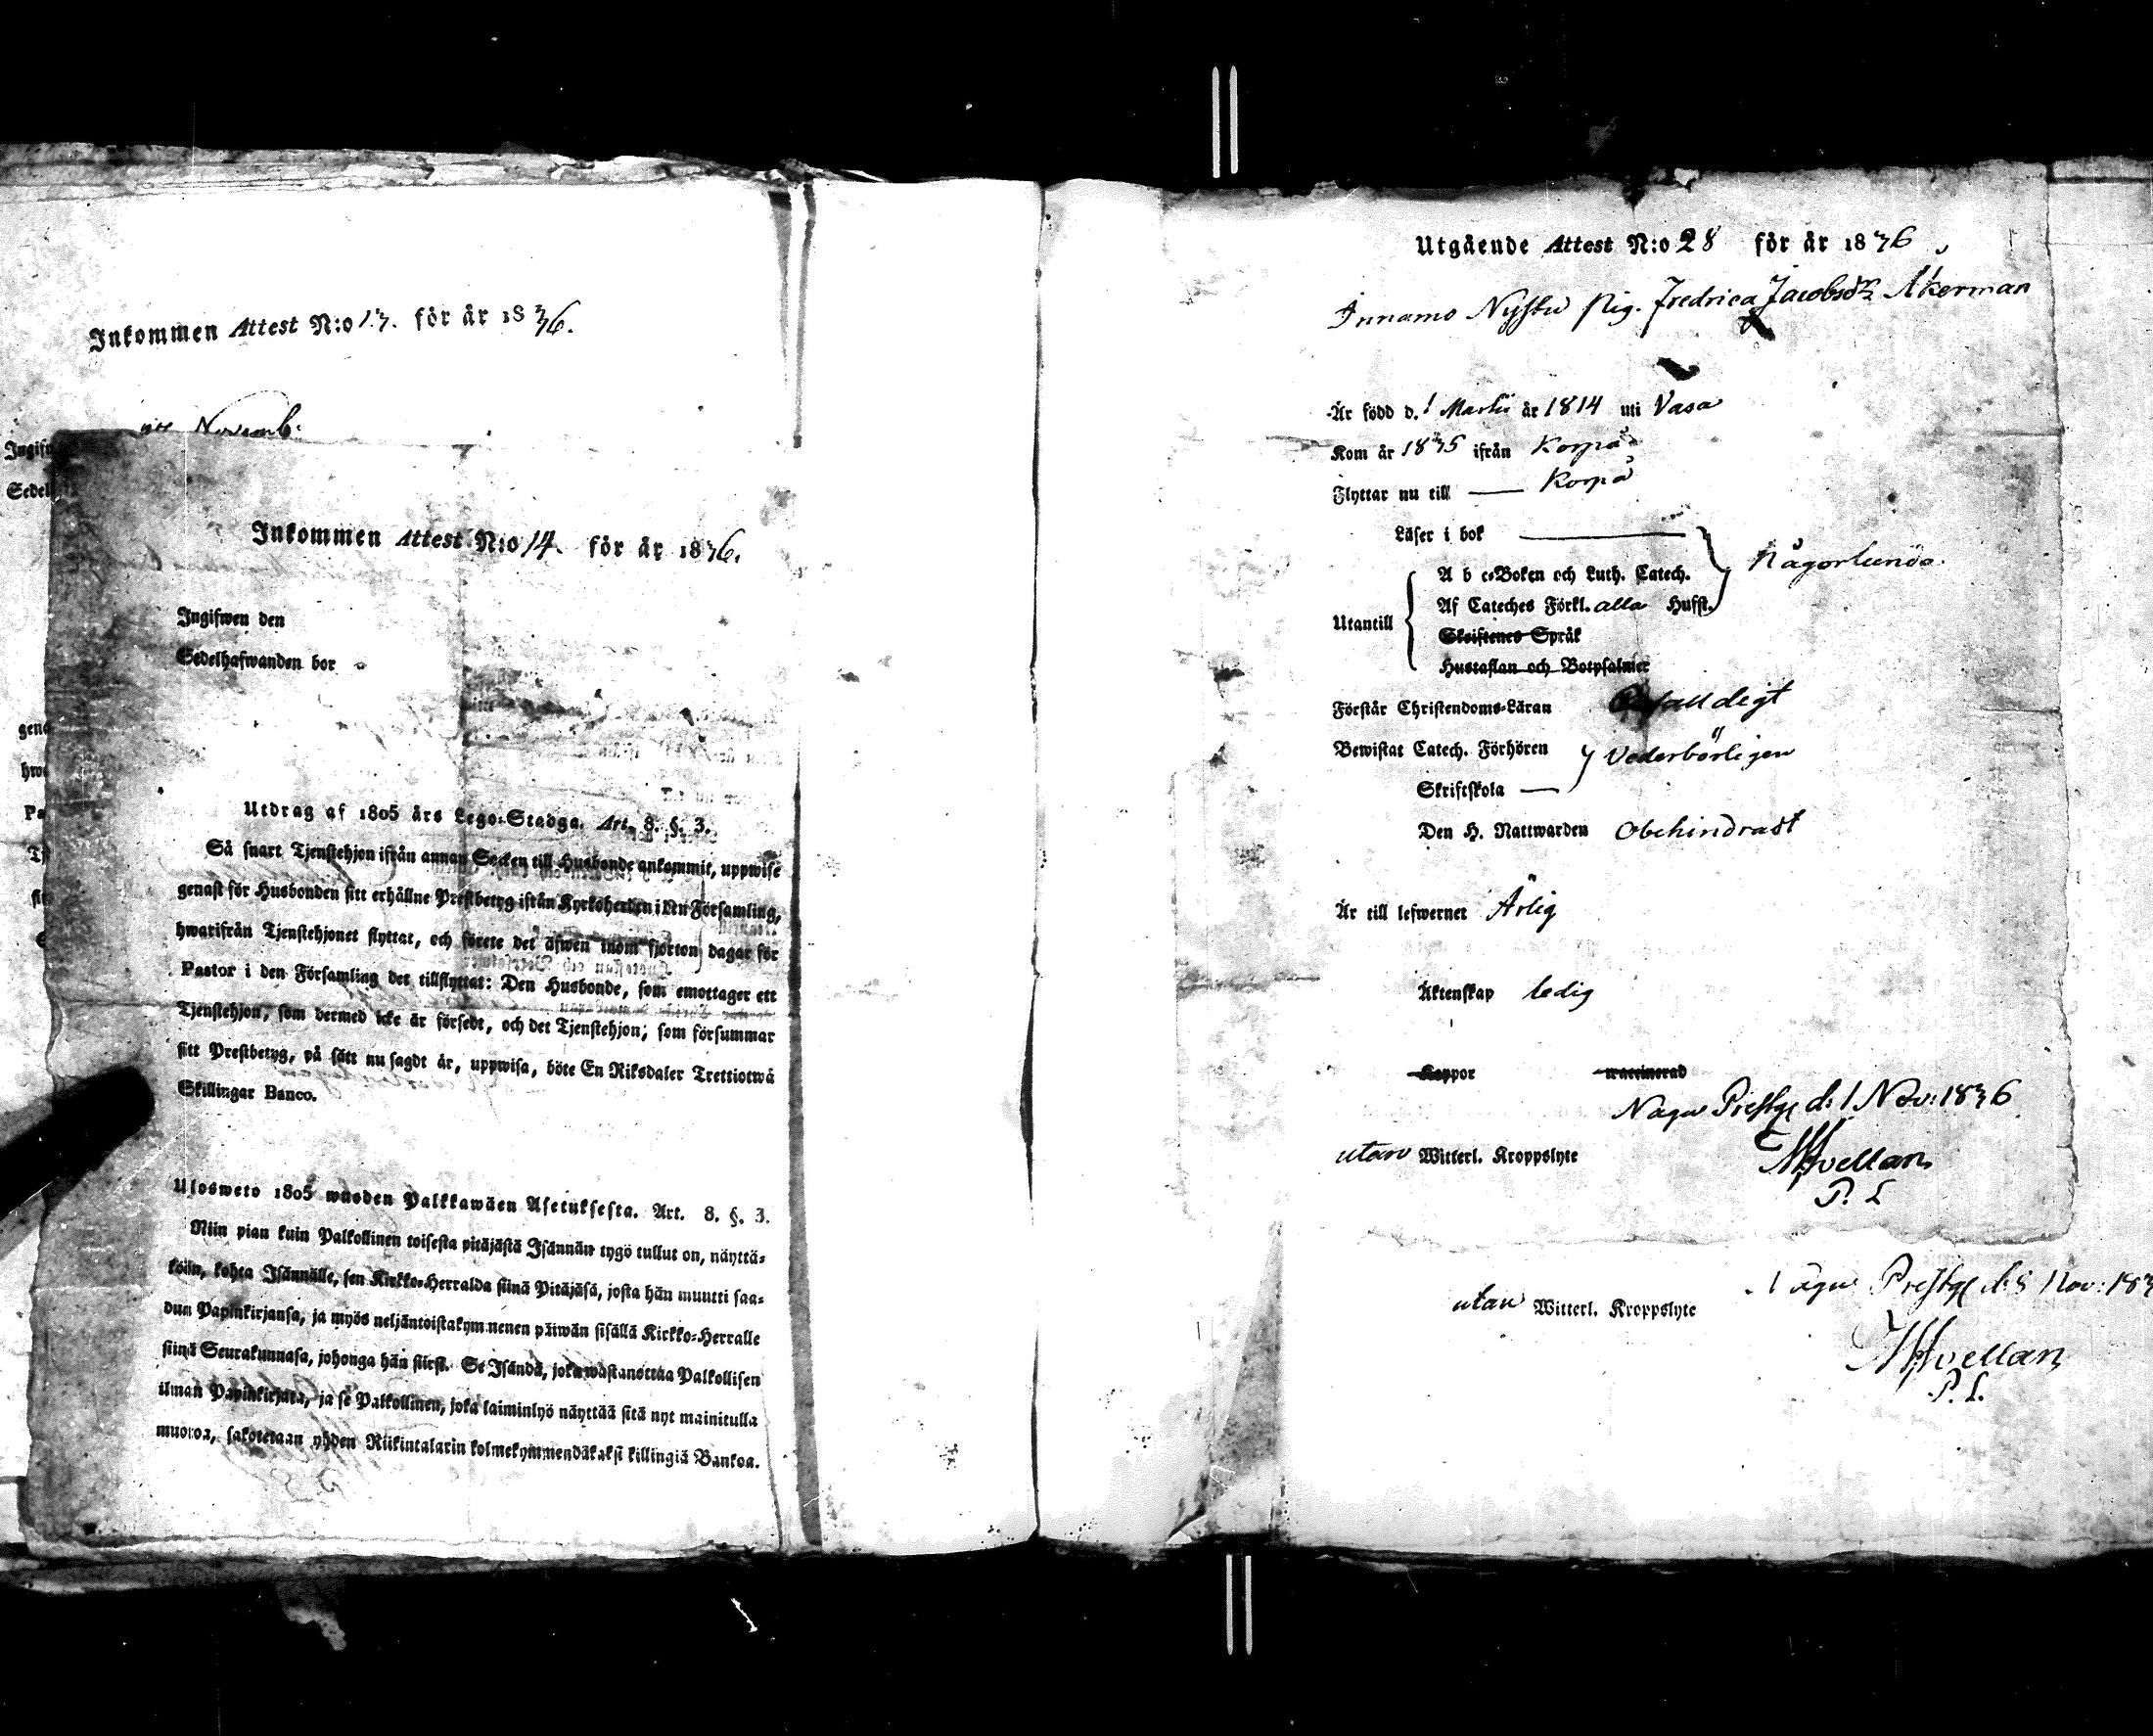 Inkommen Attest N:o 17. för år 1836.
Novemb:
Inkommen Attest N:o 14. för år 1836.
Ingifwen den
Sedelhafwanden bor
Utdrag af 1805 års Lego-Stadga. Art. 8. §. 3.
Så snart Tjenstehjon ifrån annan Socken till Husbonde ankommit, uppwise
genast för Husbonden sitt erhållne Prestbetyg ifrån Kyrkoherden i den Församling,
hwarifrån Tjenstehjonet flyttat, och förete det äfwen inom fjorton dagar för
Pastor i den Församling det tillflyttat: Den Husbonde, som emottager ett
Tjenstehjon, som dermed icke är försedt, och det Tjenstehjon, som försummar
sitt Prestbetyg, på sätt nu sagdt är, uppwisa, böte En Riksdaler Trettiotwå
Skillingar Banco.
Ulosweto 1805 wuoden Palkkawäen Asetuksesta. Art. 8. §. 3.
Niin pian kuin Palkollinen toisesta pitäjästä Isännän tygö tullut on, näyttä-
köön, kohta Isännälle, sen Kirkko-Herralda siinä Pitäjäsä, josta hän muutti saa-
dun Papinkirjansa, ja myös neljäntoistakymmenen päiwän sisällä Kirkko-Herralle
siinä Seurakunnasa, johonga hän siirsi. Se Isändä, joka wastanottaa Palkollisen
ilman Papinkirjata, ja se Palkollinen, joka laiminlyö näyttää sitä nyt mainitulla
muotoa, sakotetaan yhden Riikintalarin kolmekymmendäkaksi killingiä Bankoa.
Utgående Attest N:o 28 för år 1836
Innamo Nystu Pig. Fredrica Jacobsdr Åkerman
Är född d. 1 Martii år 1814 uti Vasa
Kom år 1835 ifrån Korpå
Flyttar nu till Korpå
Läser i bok
Utantill
A b c-Boken och Luth. Catech.
Af Cateches Förkl. alla Hufst.
Någorlunda.
Skriftenes Språk
Hustaflan och Botpsalmer
Förstår Christendoms-Läran Enfalldigt
Bewistat Catech. Förhören
Skriftskola
Vederbörligen
Den H. Nattwarden Obehindradt
Är till lefwernet Ärlig
Äktenskap ledig
Koppor waccinerad
Nagu Prestg d: 1 Nov: 1836
utan Witterl. Kroppslyte
P. L
Prestg d. 8 Nov: 183
utan Witterl. Kroppslyte
P. L.